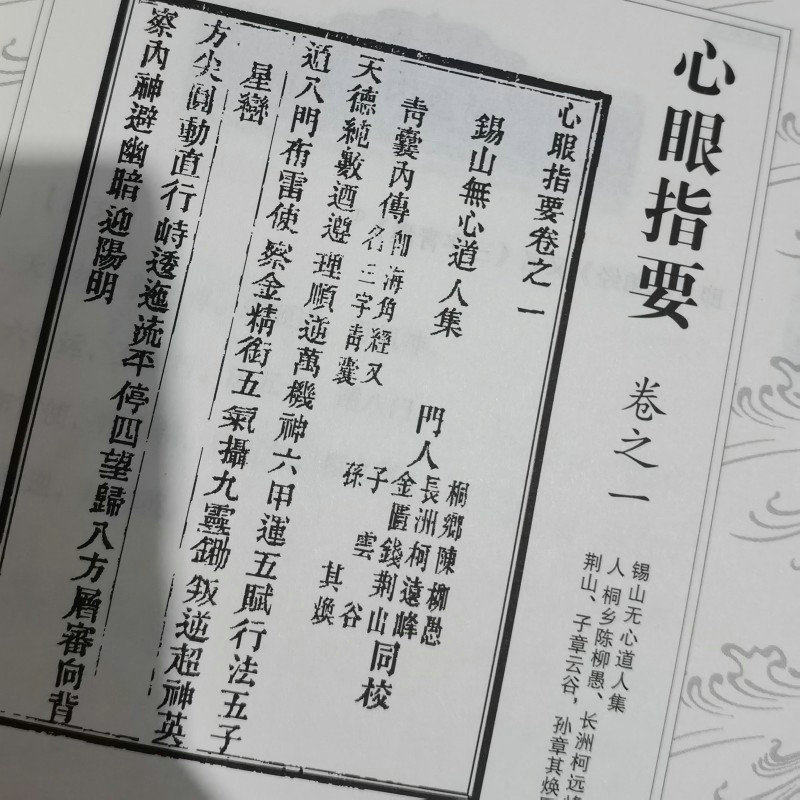 心眼指要
卷之一
锡山无心道人集
人 桐乡陈柳愚、长洲柯远峰
荆山、子章云谷，孙章其焕
心眼指要卷之一
錫山無心道人集
門人
桐鄉陳柳愚
長洲柯遠峰
金匱錢荆山
子 雲谷
孫 其焕
同校
青囊內傳
即海角經又
名三字青囊
天德純數迺遵理順逆萬機神六甲運五賦行法五子
遁八門布雷使察金精銜五氣攝九靈鋤叛逆超神英
星巒
方尖圓動直行峙透迤流平停四望歸八方層審向背
察內神避幽暗迎陽明